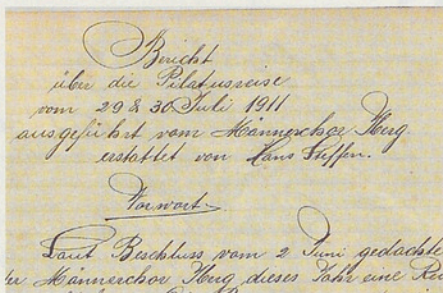 Bericht
über die Pilatusreise
vom 29 & 30 Juli 1911
ausgeführt vom Männerchor
erstattet von Hans Steffen.
Vorwort
Laut Beschluss vom 2 Juni gedachte
der Männerchor dieses Jahr eine